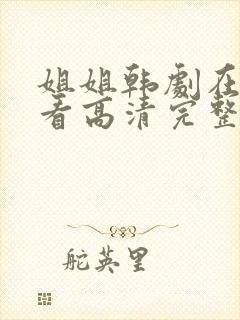 姐姐韩劇在
看高清完整
舵英里